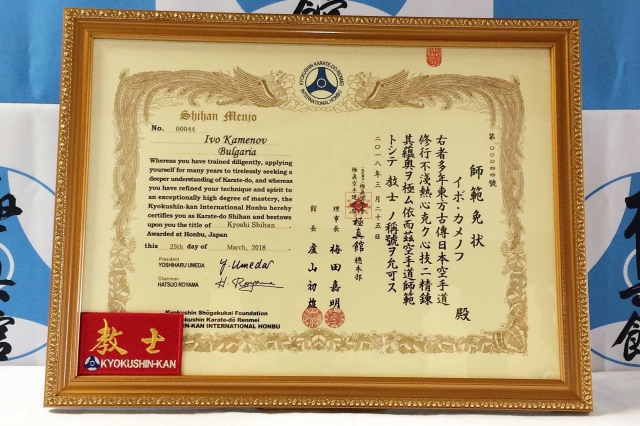 KYOKUSHIN KARATE-DO RENMEI
INTERNATIONAL HONBU
Shihan Menjo
No. 00044
Ivo Kamenov
Bulgaria
Whereas you have trained diligently, applying
yourself for many years to tirelessly seeking a
deeper understanding of Karate-do, and whereas
you have refined your technique and spirit to
an exceptionally high degree of mastery, the
Kyokushin-kan International Honbu hereby
certifies you as Karate-do Shihan and bestows
upon you the title of Kyoshi Shihan.
Awarded at Honbu, Japan
this 25th day of March, 2018
President
YOSHIHARU UMEDA
Y. Umeda
Chairman
HATSUO ROYAMA
H. Royama
Kyokushin Shōgakukai Foundation
Kyokushin Karate-do Renmei
KYOKUSHIN-KAN INTERNATIONAL HONBU
第〇〇〇四四号
師範免状
イボ・カメノフ 殿
右者多年東方古傳日本空手道
修行不浅熱心克ク心技ニ精錬
其蘊奥ヲ極ム依而茲空手道師範
トシテ 教士 ノ稱號ヲ允可ス
二〇一八年三月二十五日
極真館 總本部
理事長 梅田嘉明
館長 盧山初雄
教士
KYOKUSHIN-KAN